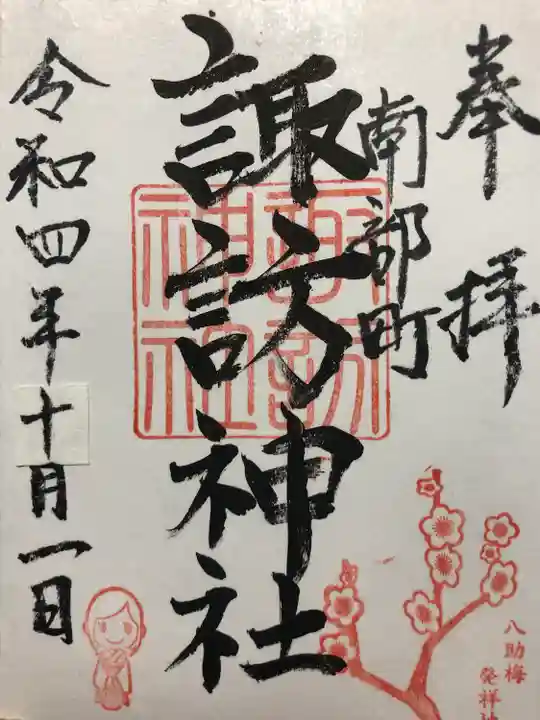 奉拝
南部町
諏訪神社
諏訪
神社
令和四年十月一日
八助梅
発祥